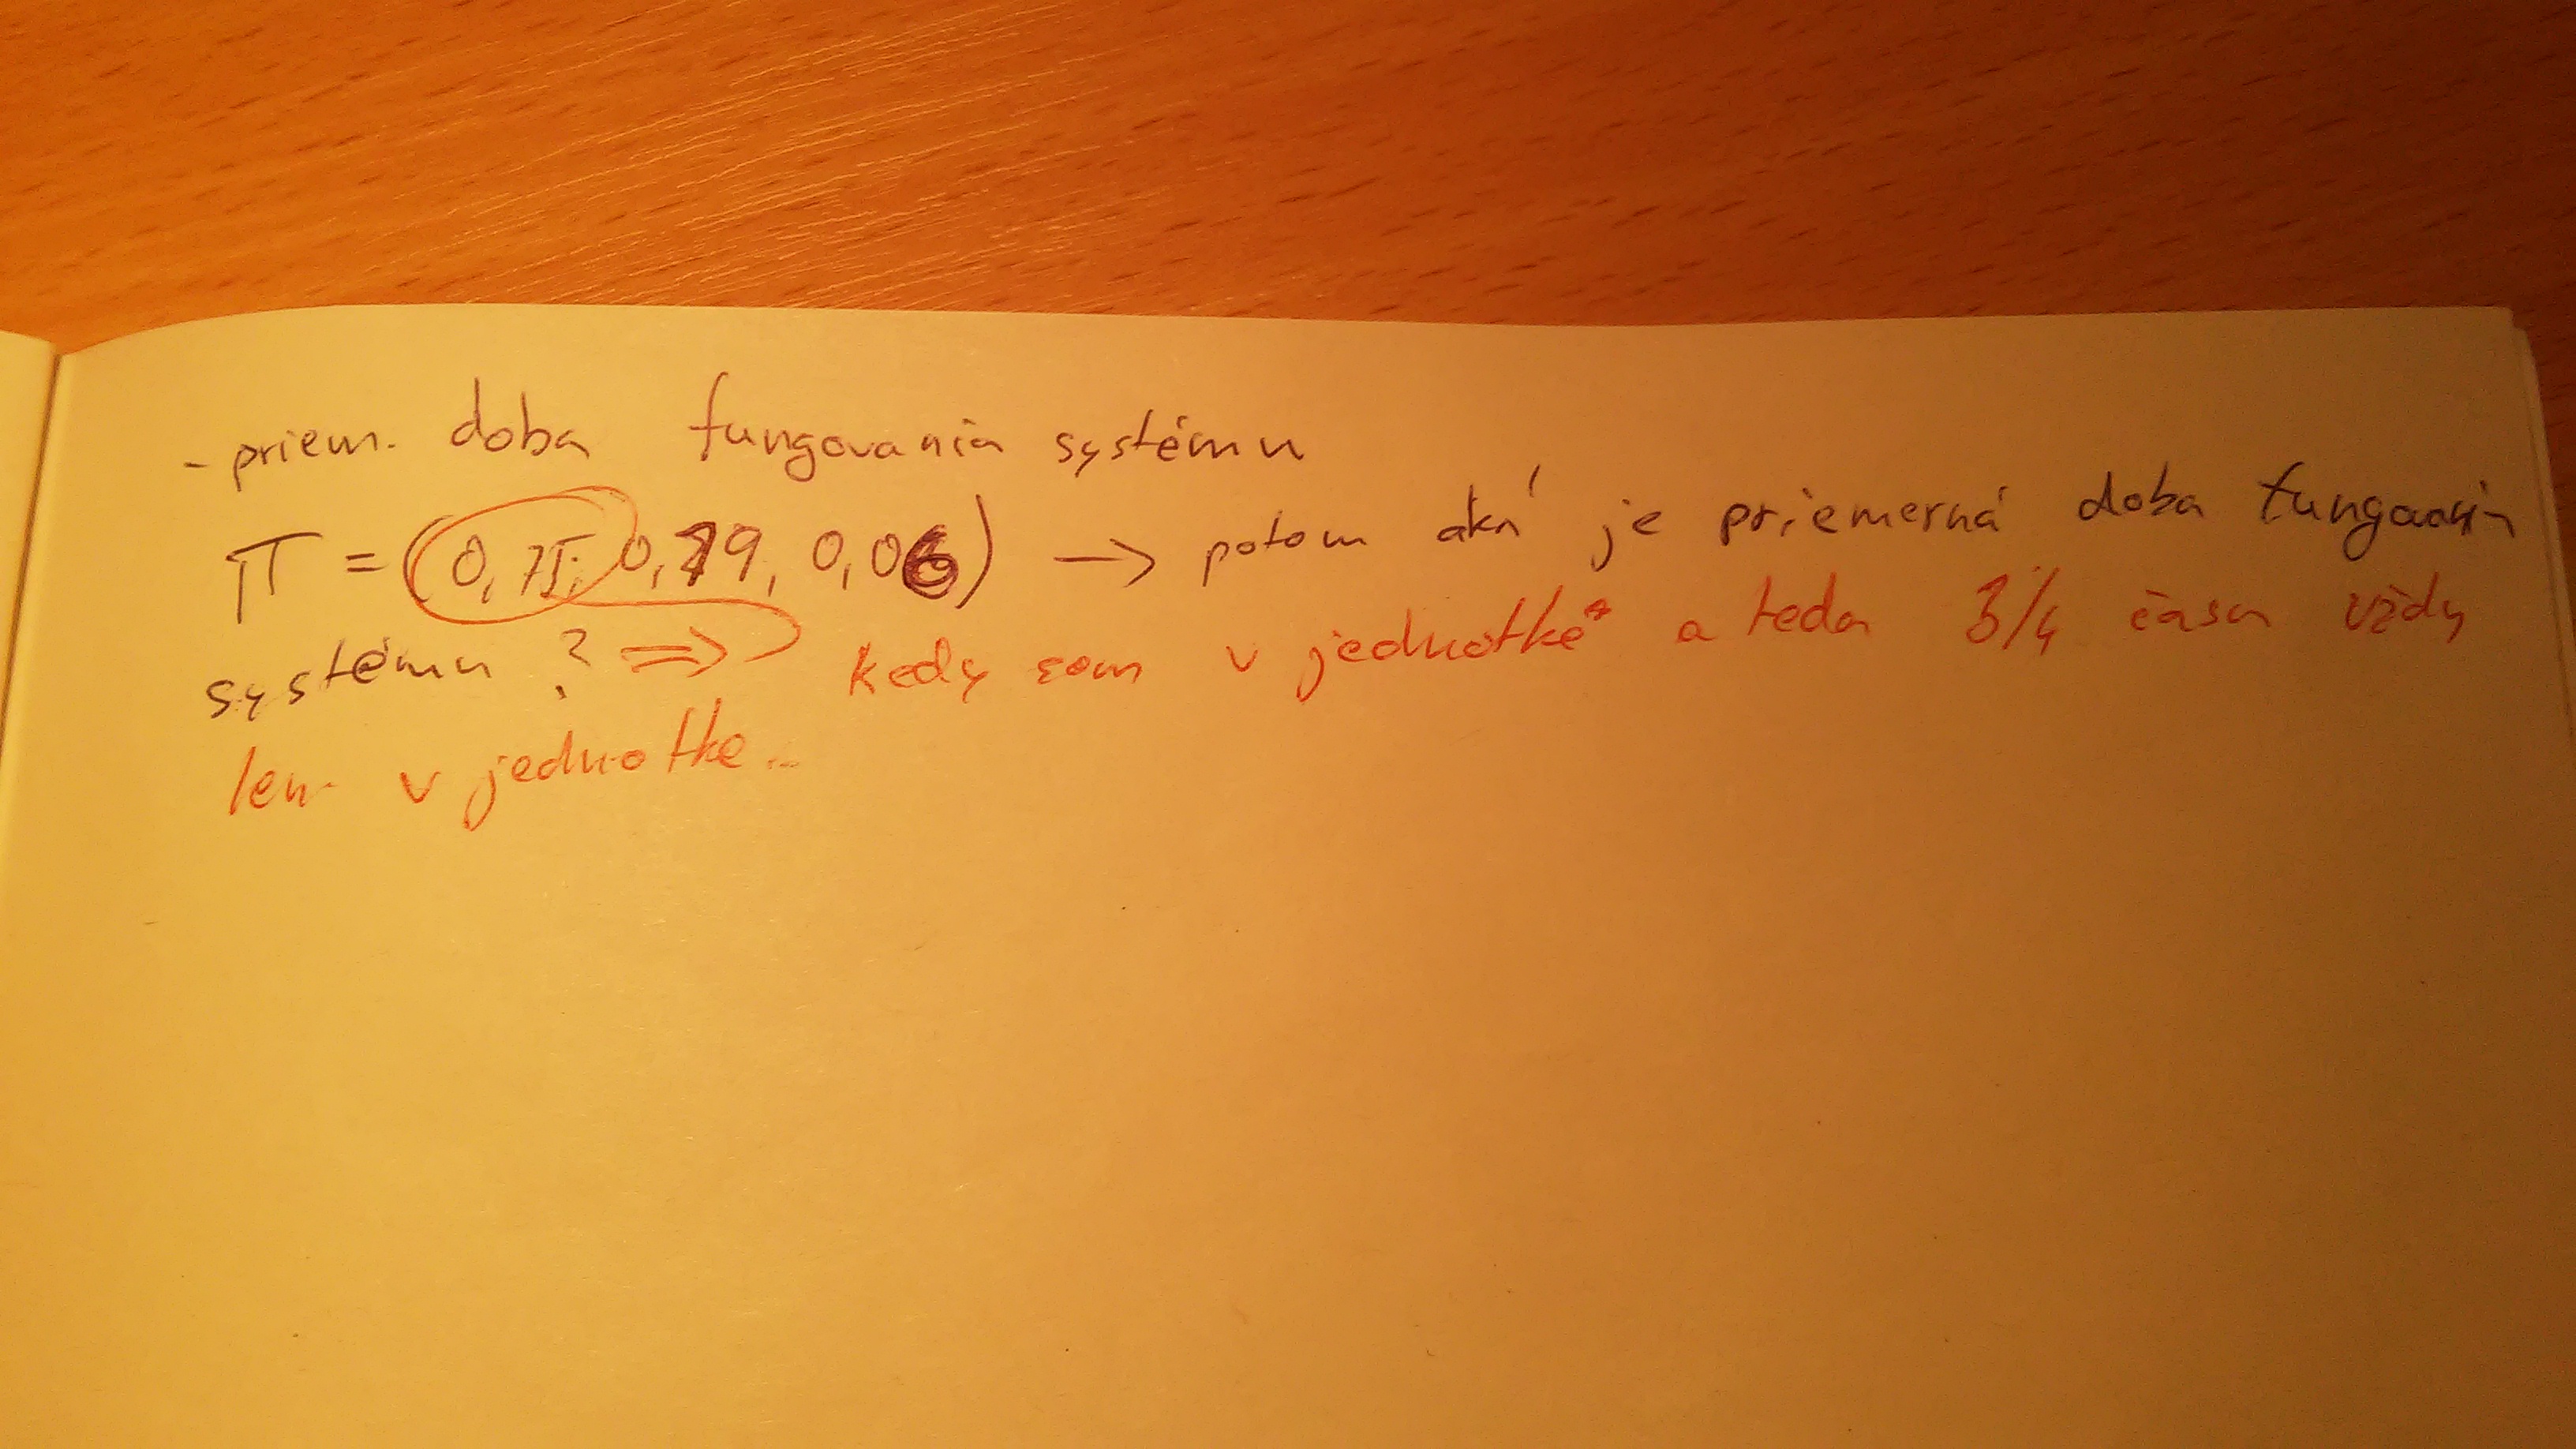 - priem. doba fungovania systému
π = (0,75, 0,19, 0,06) → potom aká je priemerná doba fungovania
systému ? ⇒ kedy som v jednotke* a teda 3/4 času vždy
len v jednotke..